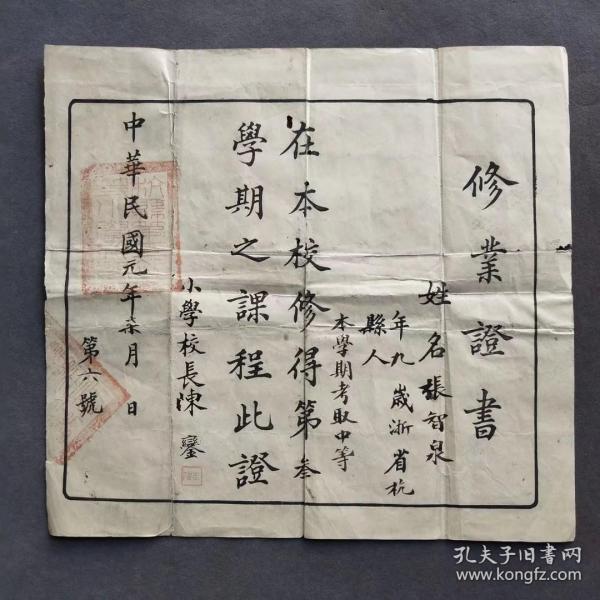 修業證書
姓名張智泉
年九歲浙省杭
縣人
本學期考取中等
在本校修得第叁
學期之課程此證
小學校長陳鑾
中華民國元年柒月日
第六號
孔夫子旧书网
www.kongfz.com